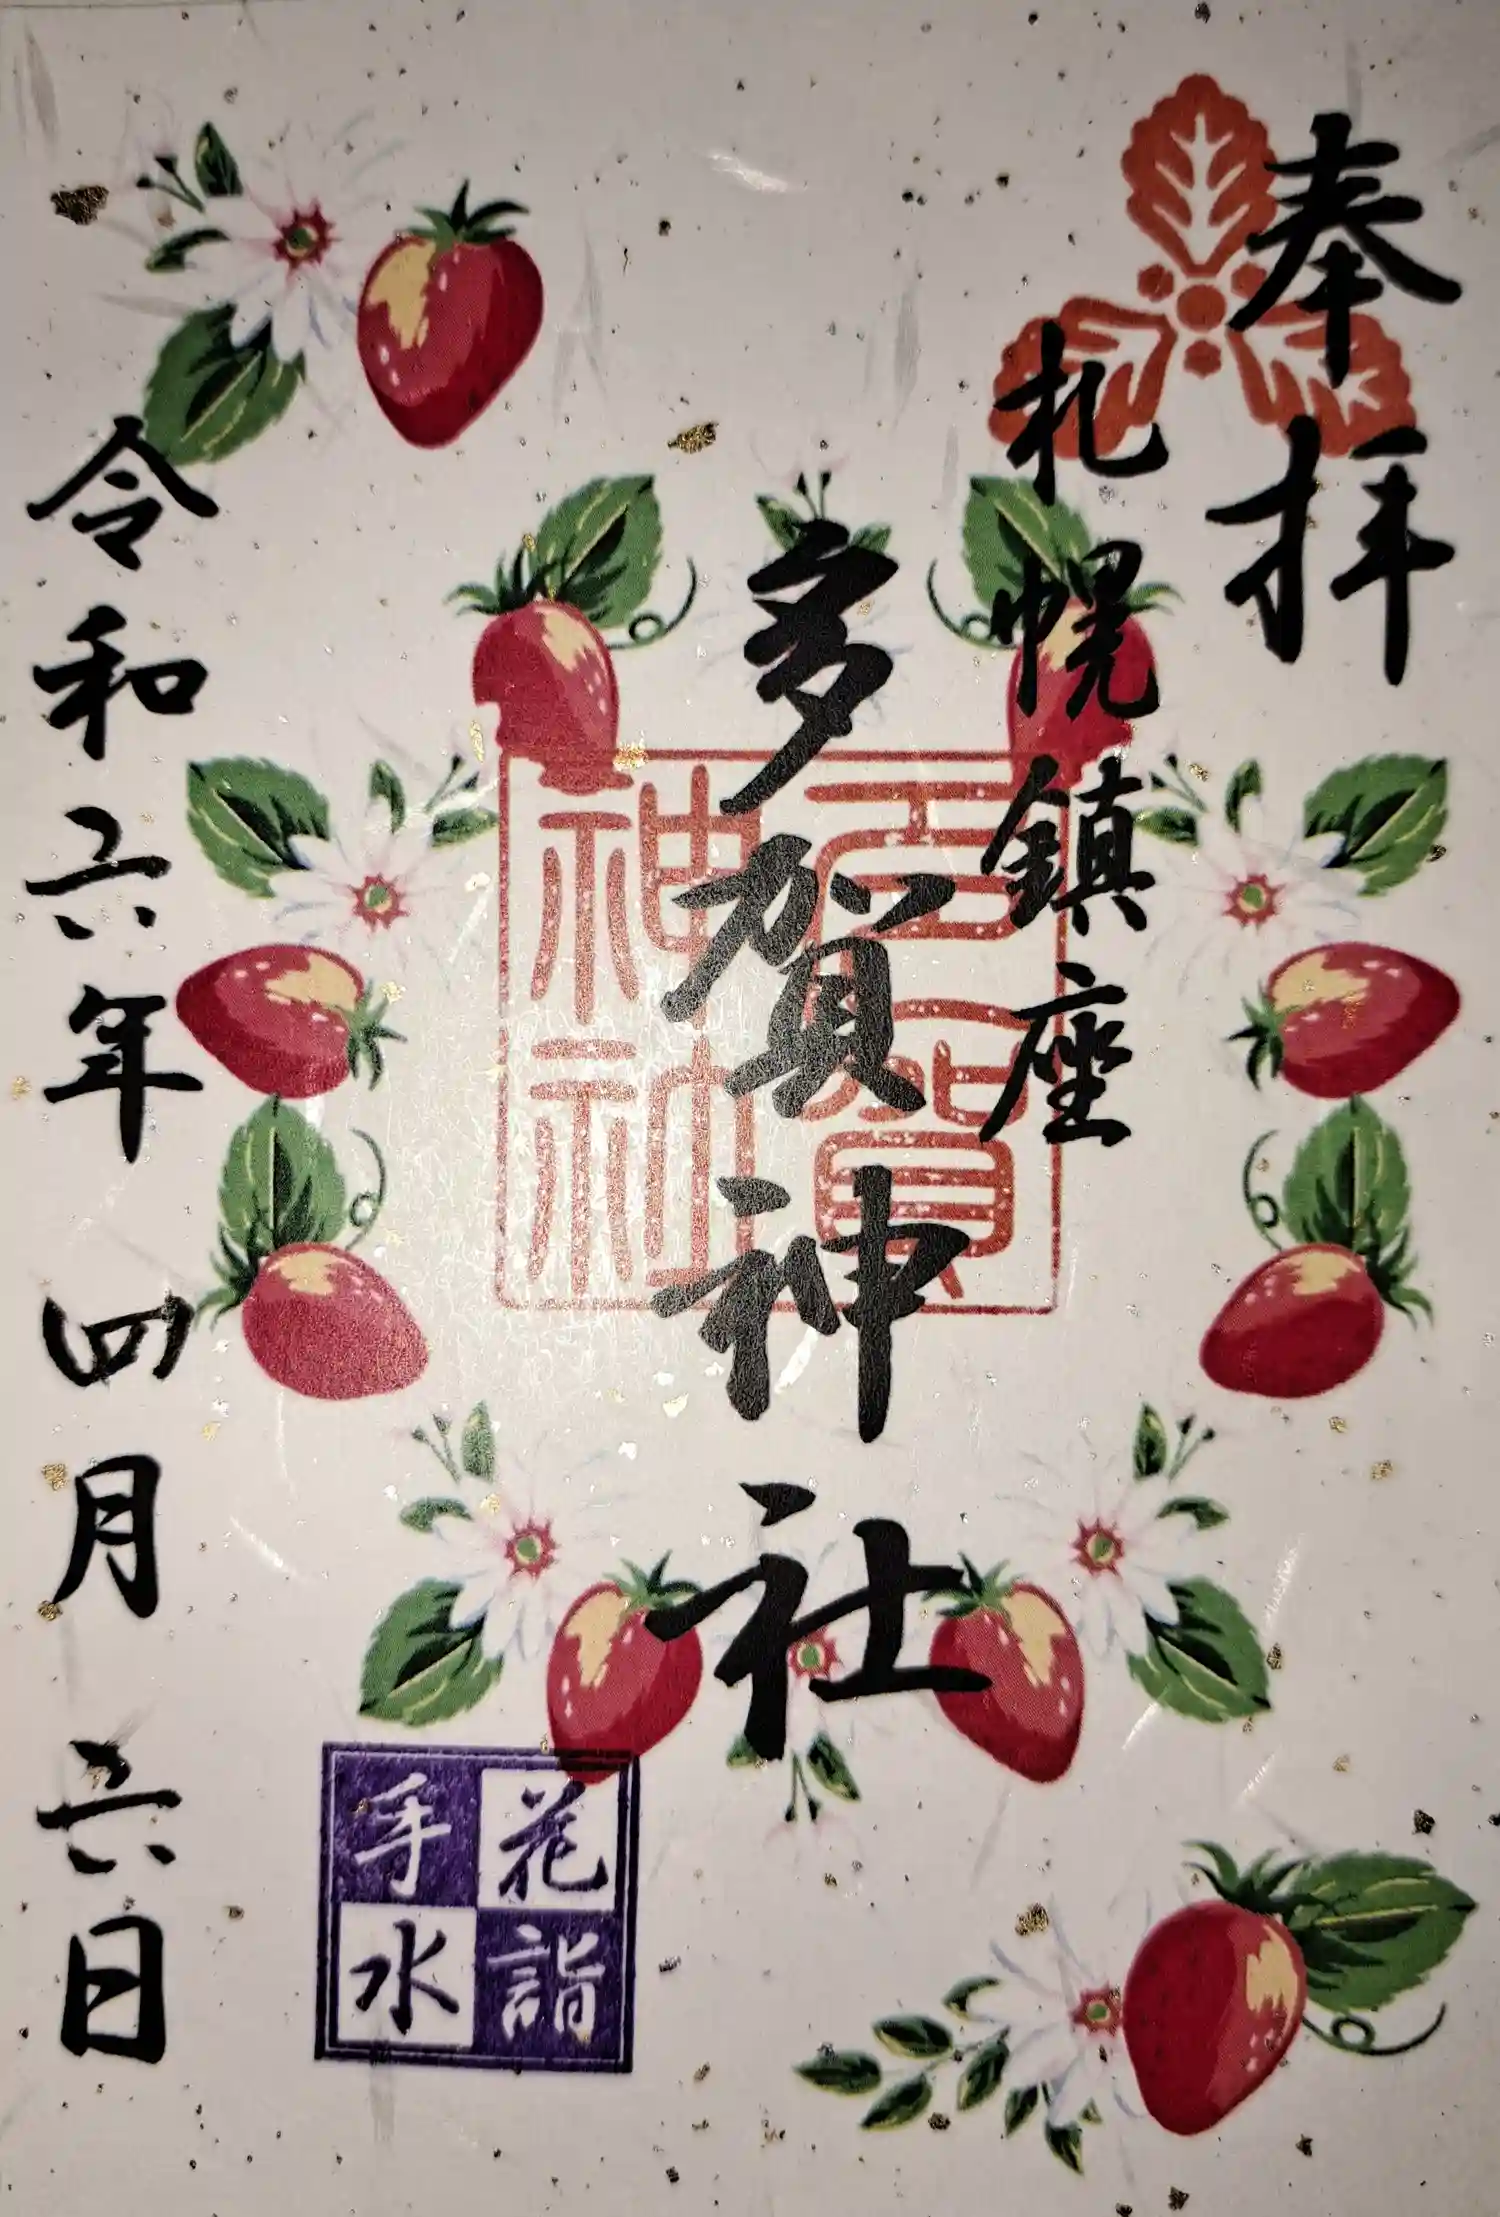 奉拝
札幌鎮座
多賀神社
多賀神社
花手水詣
令和六年 四月 六日